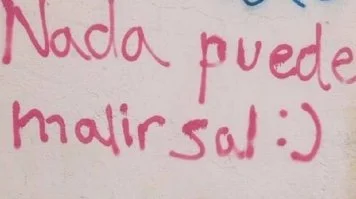 Nada puede
malir sal :)